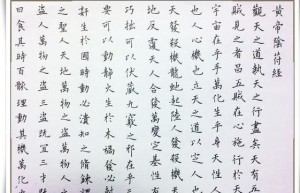 黃帝陰符經
觀天之道執天之行盡矣天有五
賊見之者昌五賊在心施行於天
宇宙在乎手萬化生乎身天性人
也人心機也立天之道以定人也
天發殺機龍蛇起陸人發殺機天
地反覆天人合發萬變定基性有
巧拙可以伏藏九竅之邪在乎三
要可以動靜火生於木禍發必
奸生於國時動必潰知之修鍊
之聖人天地萬物之盜萬物人之
盜人萬物之盜三盜既宜三才
曰食其時百骸理動其機萬化